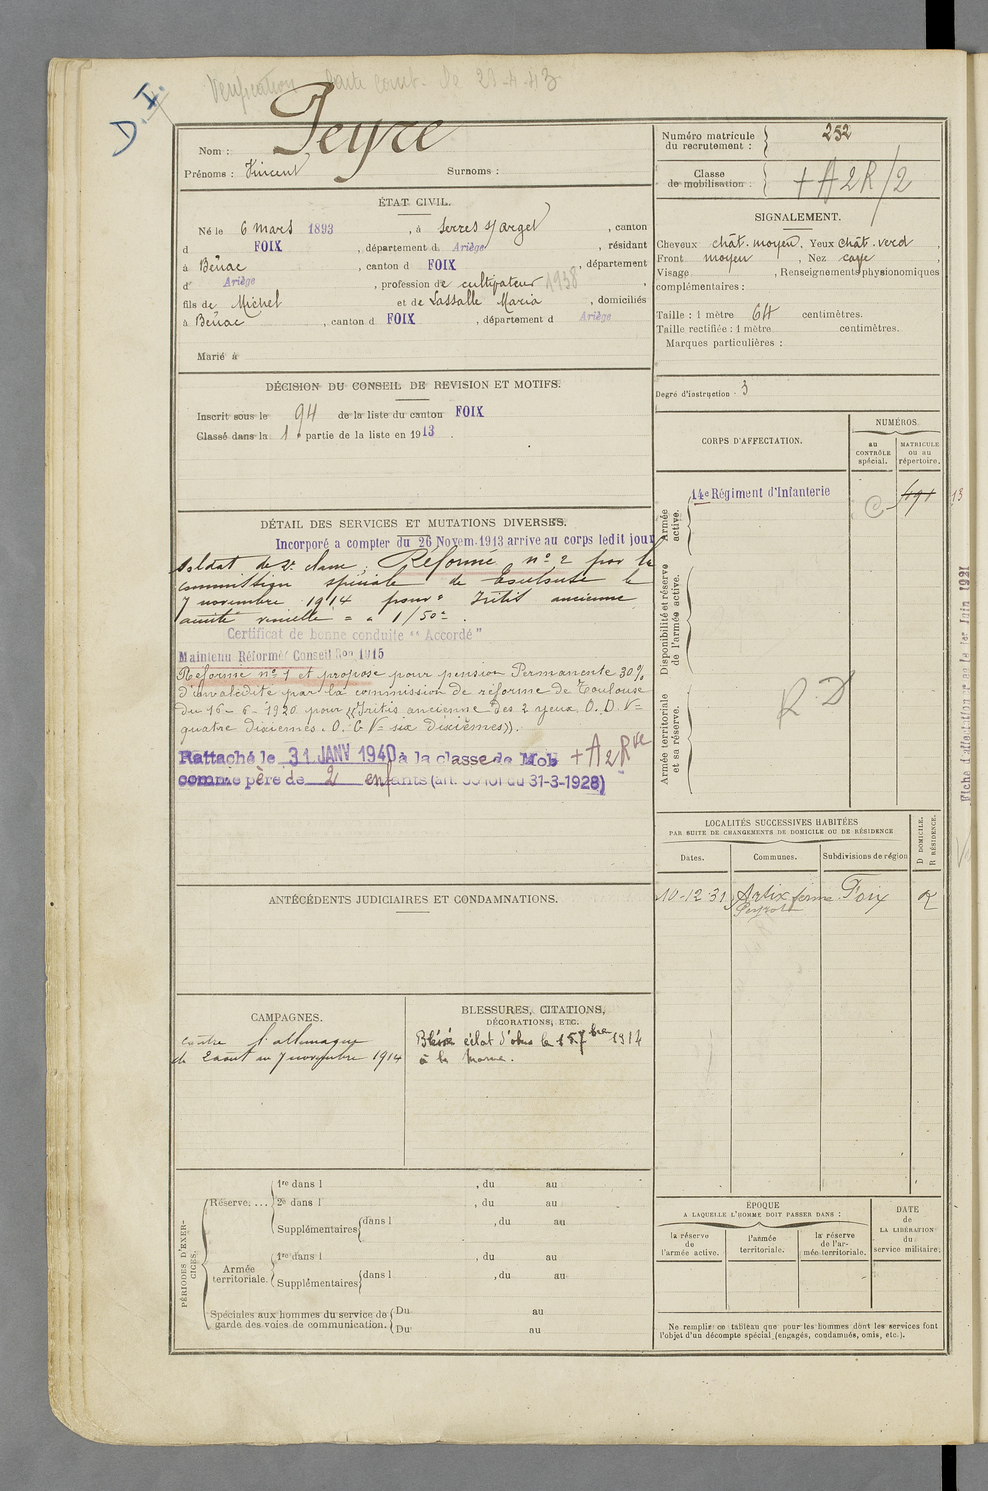 Verification carte comt. le 21-4-43
D.I.
Nom : Peyre
Prénoms : Vincent Surnoms :
ÉTAT CIVIL.
Né le 6 mars 1893, à Serres s/arget, canton
d FOIX, département d. Ariège, résidant
à Bénac, canton d FOIX, département
d' Ariège, profession de cultivateur 1938
fils de Michel et de Lassalle Maria, domiciliés
à Bénac, canton d FOIX, département d Ariège
Marié à
DÉCISION DU CONSEIL DE REVISION ET MOTIFS.
Inscrit sous le 94 de la liste du canton FOIX
Classé dans la 1 partie de la liste en 1913.
DÉTAIL DES SERVICES ET MUTATIONS DIVERSES.
Incorporé a compter du 26 Novem. 1913 arrive au corps ledit jour
soldat de 2e classe. Réformé n° 2 par la
commission spéciale de Toulouse le
7 novembre 1914 pour "Iritis ancienne
acuité visuelle = à 1/50e.
Certificat de bonne conduite "Accordé"
Maintenu Réformé Conseil Ron 1915
Réformé n° 1 et proposé pour pension Permanente 30%
d'invalidité par la commission de réforme de Toulouse
du 16-6-1920 pour "Iritis ancienne des 2 yeux O.D. V=
quatre dixièmes. O.G V= six dixièmes").
Rattaché le 31 JANV 1940 à la classe de Mob + A2Rve
comme père de 2 enfants (art. 58 loi du 31-3-1928)
ANTÉCÉDENTS JUDICIAIRES ET CONDAMNATIONS.
CAMPAGNES.
contre l'allemagne
du 2 août au 7 novembre 1914
BLESSURES, CITATIONS,
DÉCORATIONS, ETC.
Blessé éclat d'obus le 15 7bre 1914
à la Marne.
PÉRIODES D'EXERCICES.
Réserve. ... 1re dans l , du au
2e dans l , du au
Supplémentaires dans l , du au
Armée territoriale. 1re dans l , du au
Supplémentaires dans l , du au
Spéciales aux hommes du service de garde des voies de communication. Du au
Du au
Numéro matricule du recrutement : 252
Classe de mobilisation : + A2R/2
SIGNALEMENT.
Cheveux chât. moyen, Yeux chât. verd,
Front moyen, Nez cave,
Visage , Renseignements physionomiques
complémentaires :
Taille : 1 mètre 64 centimètres.
Taille rectifiée : 1 mètre centimètres.
Marques particulières :
Degré d'instruction 3
CORPS D'AFFECTATION.
NUMÉROS
au CONTRÔLE spécial.
MATRICULE ou au répertoire.
Armée active.
14e Régiment d'Infanterie
Disponibilité et réserve de l'armée active.
Armée territoriale et sa réserve.
R.D
LOCALITÉS SUCCESSIVES HABITÉES
PAR SUITE DE CHANGEMENTS DE DOMICILE OU DE RÉSIDENCE
D DOMICILE. R RÉSIDENCE.
Dates. Communes. Subdivisions de région
10-12-31 Artix ferme Foix R
ÉPOQUE
A LAQUELLE L'HOMME DOIT PASSER DANS :
la réserve de l'armée active.
l'armée territoriale.
la réserve de l'armée territoriale.
DATE de LA LIBÉRATION du service militaire.
Ne remplir ce tableau que pour les hommes dont les services font
l'objet d'un décompte spécial (engagés, condamnés, omis, etc.).